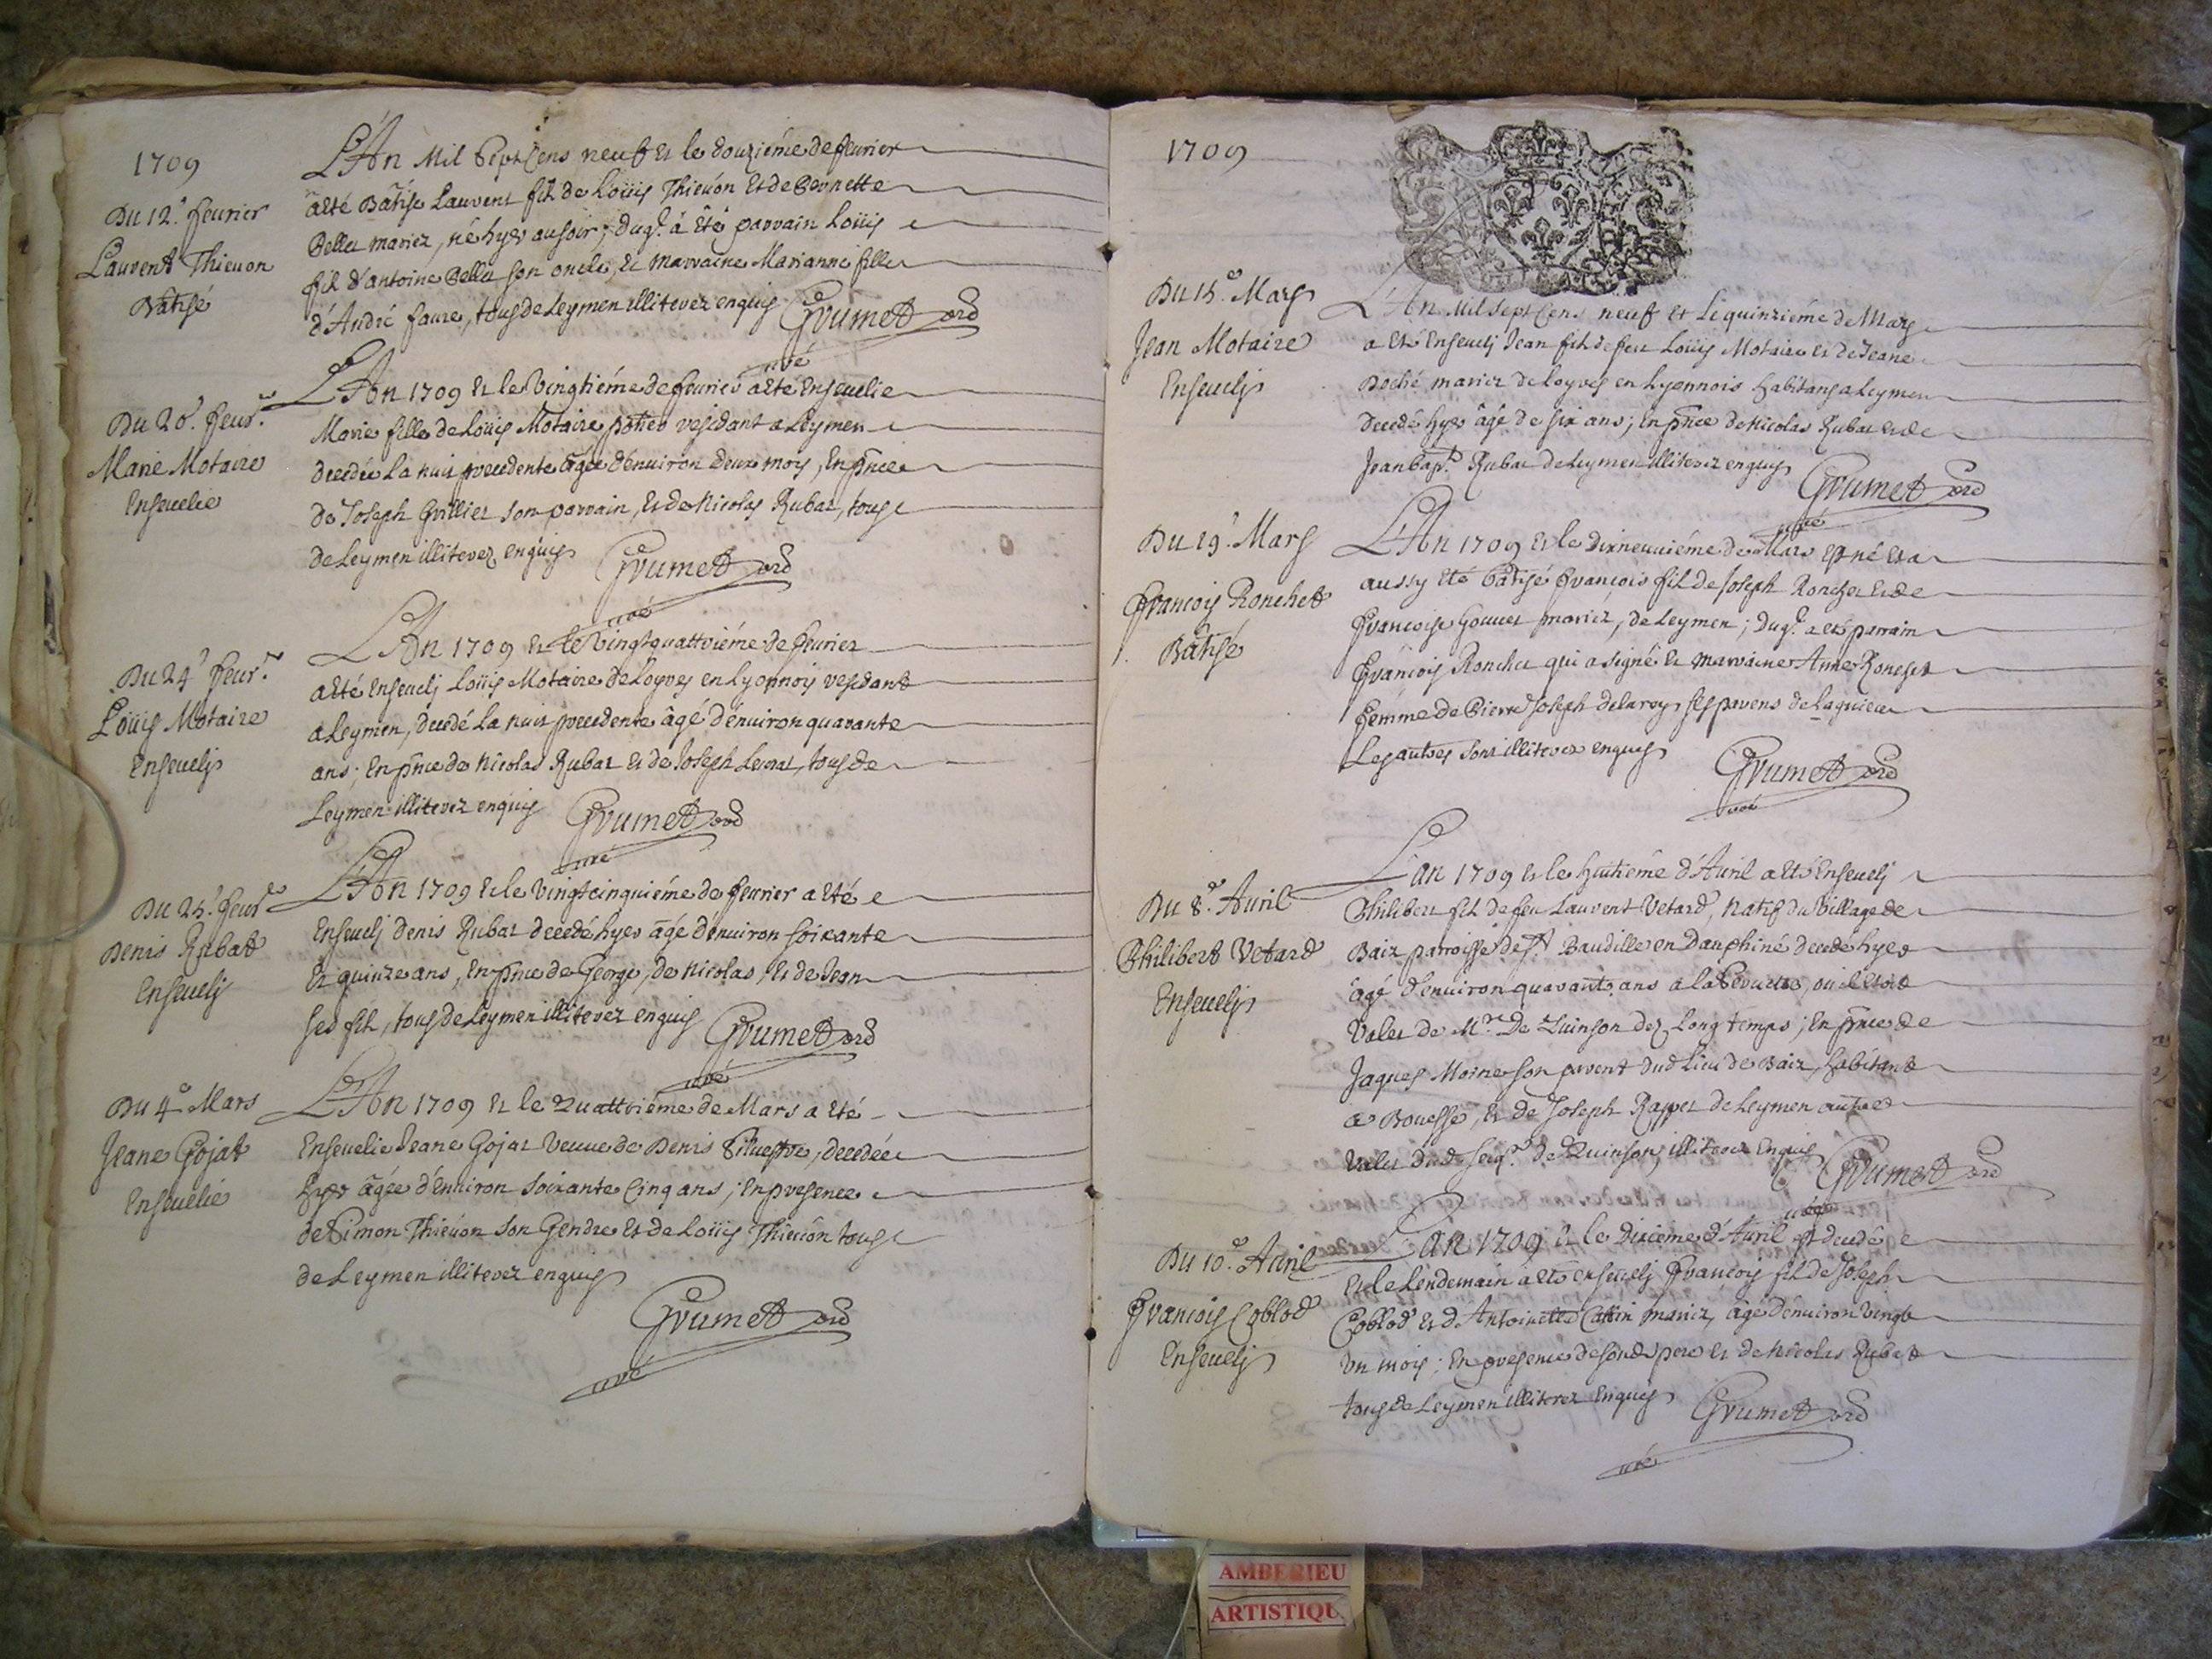 1709
Du 12.e feurier
Laurent Thieuon
Bâtisé
L'An Mil Sept Cens neuf et le douziéme de feurier
a été Bâtisé Laurent fil de Loüis Thieuón et de Pernette
Bellet mariez, né hyer au soir; duql. a été parrain Loüis
fil d'antoine Bellet son oncle, et marraine Marianne fille
d'André faure, tous de Leymen illiterez enquis Grumet
curé
Du 20.e feur.er
Marie Motaire
Enseuelie
L'An 1709 et le Vingtiéme de feurier a été Enseuelie
Marie fille de Loüis Motaire potier residant a Leymen
decedée La nuit precedente âgée d'enuiron deux mois, En pnce
de Joseph Grillier son parrain, et de Nicolas Rubat, tous
de Leymen illiterez enquis Grumet
curé
Du 24.e feur.er
Loüis Motaire
Enseuelj
L'An 1709 et le Vingtquattriéme de feurier
a été Enseuelj Loüis Motaire de Loyres en Lyonnois residant
a Leymen, decedé La nuit precedente âgé d'enuiron quarante
ans; En pnce de Nicolas Rubat et de Joseph, tous de
Leymen illiterez enquis Grumet
curé
Du 25.e feur.er
Denis Rubat
Enseuelj
L'An 1709 et le Vingtcinquiéme de feurier a été
Enseuelj Denis Rubat decedé hyer âgé d'enuiron soixante
et quinze ans, En pnce de George, de Nicolas, et de Jean
ses fils, tous de Leymen illiterez enquis Grumet
curé
Du 4.e Mars
Jeane Gojat
Enseuelie
L'An 1709 et le Quattriéme de Mars a été
Enseuelie Jeane Gojat Veuue de Denis Siluestre, decedée
hyer âgée d'énuiron soixante Cinq ans; En presence
de Simon Thieuon son Gendre et de Loüis Thieuón tous
de Leymen illiterez enquis
Grumet
curé
1709
Du 15.e Mars
Jean Motaire
Enseuelj
L'An Mil sept Cens neuf et Le quinziéme de Mars
a été Enseuelj Jean fil de feu Loüis Motaire et de Jeane
Doché mariez de Loyres en Lyonnois habitans a Leymen
decedé hyer âgé de six ans; En pnce de Nicolas Rubat et de
Jean bapt.e Rubat de Leymen illiterez enquis Grumet
curé
Du 19.e Mars
François Ronchet
Bâtisé
L'An 1709 et le dixneuuiéme de Mars est né et a
aussy été Bâtisé François fil de Joseph Ronchet et de
Françoise Gouuet mariez, de Leymen; duql. a été parrain
François Ronchet qui a signé et marraine Anne Ronchet
femme de Pierre Joseph delaroy, ses parens de Lagnieu
Les autres sont illiterez enquis
Grumet
curé
Du 8.e Auril
Philibert Vetard
Enseuelj
L'an 1709 et le huitiéme d'Auril a été Enseuelj
Philibert fil de feu Laurent Vetard, natif du Village de
Baix parroisse de St. Baudille en Dauphiné decedé hyer
âgé d'enuiron quarante ans a la Seruette, ou il étoit
Valet de Mr. De Quinson dez Long temps; En pnce de
Jaques Moine son parent dud Lieu de Baix, habitant
a Bouesse, et de Joseph Rappet de Leymen autre
Valet dud Seigr. de Quinson, illiterez Enquis Grumet
curé
Du 10.e Auril
François Coblod
Enseuelj
L'an 1709 et le Dixieme d'Auril est decedé
et le Lendemain a été enseuelj François fil de Joseph
Coblod et d'Antoinette Cattin mariez, âgé d'enuiron Vingt
un mois; En presence de sond pere et de Nicolas Rubat
tous de Leymen illiterez Enquis Grumet
curé
AMBERIEU
ARTISTIQU